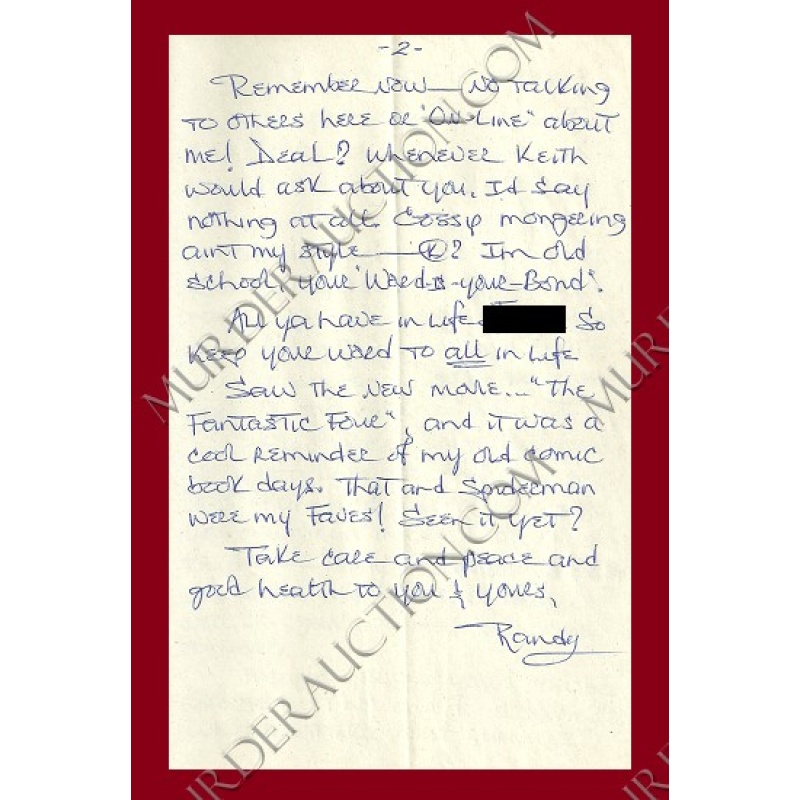 -2-
Remember now — No talking
to others here or "On-Line" about
me! Deal? Whenever Keith
would ask about you, I'd say
nothing at all. Gossip mongering
aint my style — OK? Im old
school, your "Word-is-your-Bond".
All ya have in life So
keep your word to all in life
Saw the new movie... "The
Fantastic Four", and it was a
cool reminder of my old comic
book days. That and Spiderman
were my faves! Seen it yet?
Take care and peace and
good health to you & yours,
Randy
MURDERAUCTION.COM
MURDERAUCTION.COM